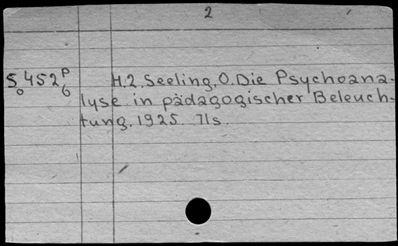 2
S 452 P H.2. Seeling, O. Die Psychoana-
o 6 lyse in pädagogischer Beleuch-
tung. 1925. 71s.